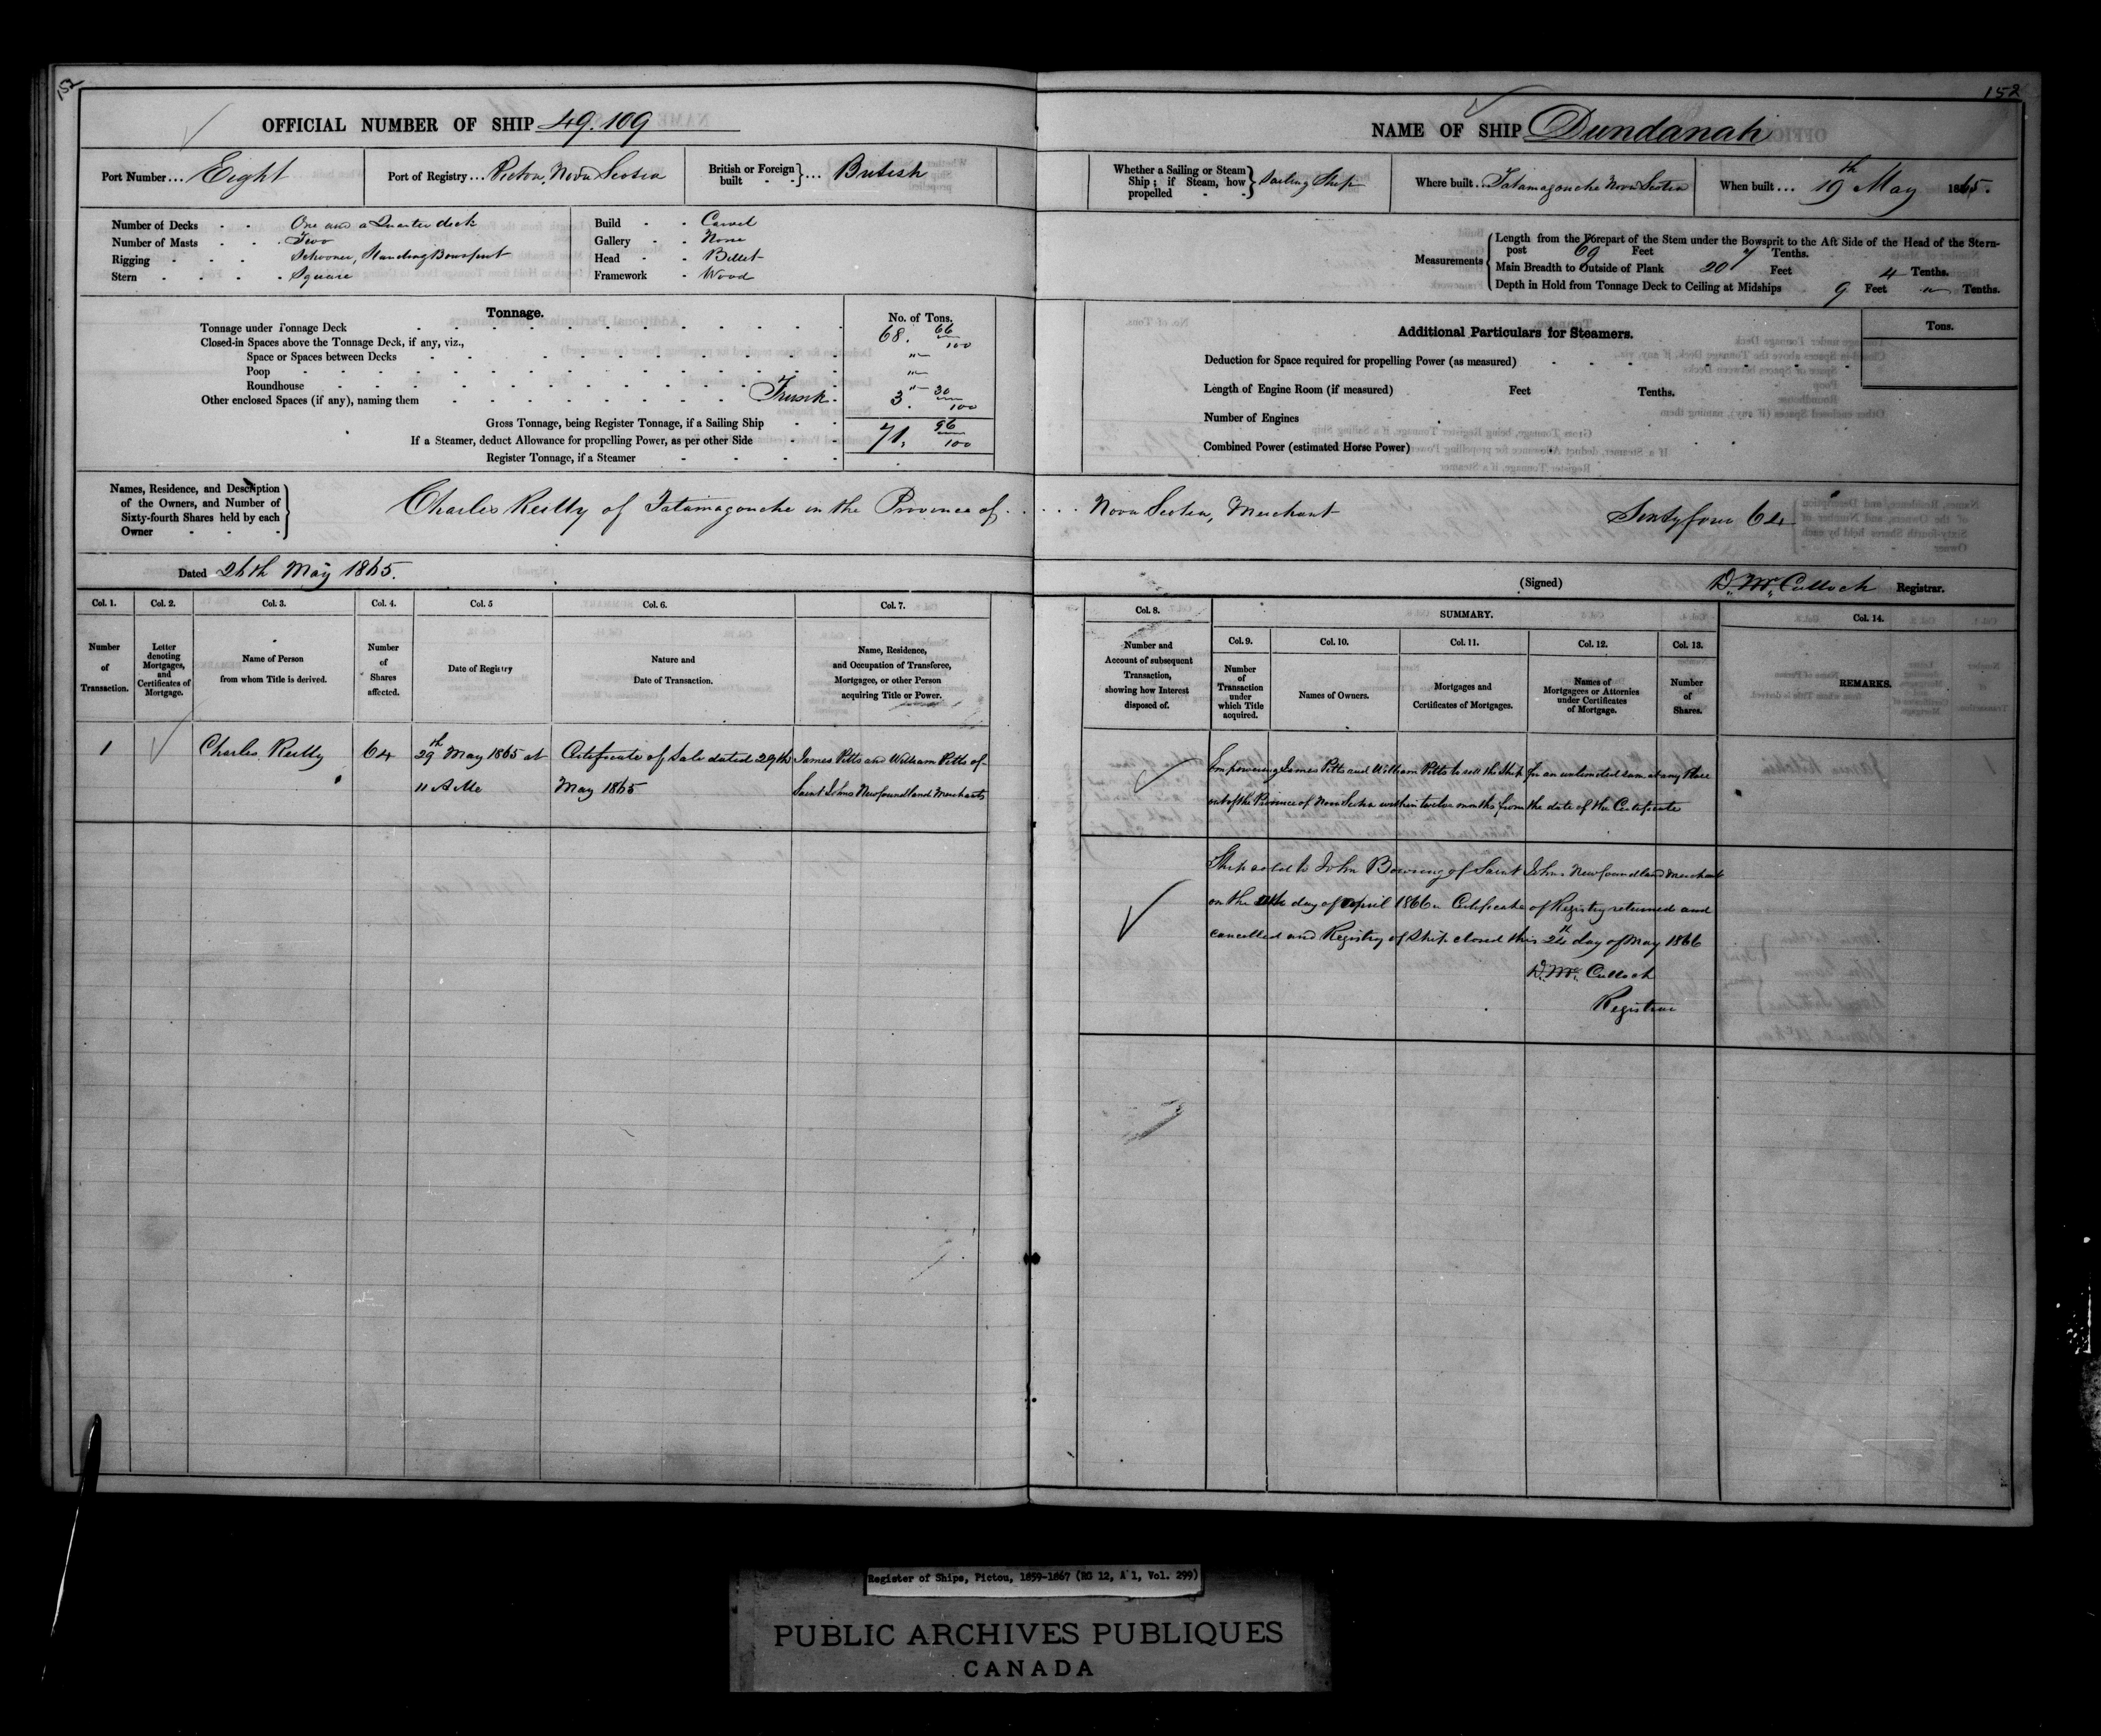 152
152
OFFICIAL NUMBER OF SHIP 49.109
NAME OF SHIP Dundanah
Port Number ... Eight
Port of Registry ... Pictou, Nova Scotia
British or Foreign built ... British
Whether a Sailing or Steam Ship; if Steam, how propelled Sailing Ship
Where built ... Tatamagouche Nova Scotia
When built ... 19th May 1865.
Number of Decks One and a Quarter deck
Number of Masts Two
Rigging Schooner, Standing Bowsprit
Stern Square
Build Carvel
Gallery None
Head Billet
Framework Wood
Measurements
Length from the Forepart of the Stem under the Bowsprit to the Aft Side of the Head of the Stern-
post 69 Feet 7 Tenths.
Main Breadth to Outside of Plank 20 Feet 4 Tenths.
Depth in Hold from Tonnage Deck to Ceiling at Midships 9 Feet " Tenths.
Tonnage.
No. of Tons.
Tonnage under Tonnage Deck 68. 66/100
Closed-in Spaces above the Tonnage Deck, if any, viz.,
Space or Spaces between Decks "
Poop "
Roundhouse "
Other enclosed Spaces (if any), naming them Trunk. 3. 30/100
Gross Tonnage, being Register Tonnage, if a Sailing Ship 71. 96/100
If a Steamer, deduct Allowance for propelling Power, as per other Side
Register Tonnage, if a Steamer
Additional Particulars for Steamers.
Tons.
Deduction for Space required for propelling Power (as measured)
Length of Engine Room (if measured) Feet Tenths.
Number of Engines
Combined Power (estimated Horse Power)
Names, Residence, and Description
of the Owners, and Number of
Sixty-fourth Shares held by each
Owner
Charles Reilly of Tatamagouche in the Province of ..... Nova Scotia, Merchant Sixtyfour 64
Dated 26th May 1865.
(Signed) D. McCulloch Registrar.
Col. 1.
Number of Transaction.
Col. 2.
Letter denoting Mortgages, and Certificates of Mortgage.
Col. 3.
Name of Person from whom Title is derived.
Col. 4.
Number of Shares affected.
Col. 5
Date of Registry
Col. 6.
Nature and Date of Transaction.
Col. 7.
Name, Residence, and Occupation of Transferee, Mortgagee, or other Person acquiring Title or Power.
Col. 8.
Number and Account of subsequent Transaction, showing how Interest disposed of.
SUMMARY.
Col. 9.
Number of Transaction under which Title acquired.
Col. 10.
Names of Owners.
Col. 11.
Mortgages and Certificates of Mortgages.
Col. 12.
Names of Mortgagees or Attornies under Certificates of Mortgage.
Col. 13.
Number of Shares.
Col. 14.
REMARKS.
1 Charles Reilly 64 29th May 1865 at Certificate of Sale dated 29th James Pitts and William Pitts of
11 A M May 1865 Saint Johns Newfoundland Merchants
Empowering James Pitts and William Pitts to sell the Ship for an unlimited sum at any place
out of the Province of Nova Scotia within twelve months from the date of the Certificate
Ship sold to John Bowring of Saint Johns Newfoundland Merchant
on the day of April 1866. Certificate of Registry returned and
cancelled and Registry of Ship closed this 24th day of May 1866
D. McCulloch
Registrar
Register of Ships, Pictou, 1859-1867 (RG 12, A 1, Vol. 299)
PUBLIC ARCHIVES PUBLIQUES
CANADA